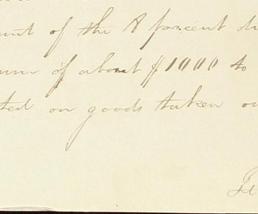 unt of the 8 percent di
um of about $1000 to
ted on goods taken ou